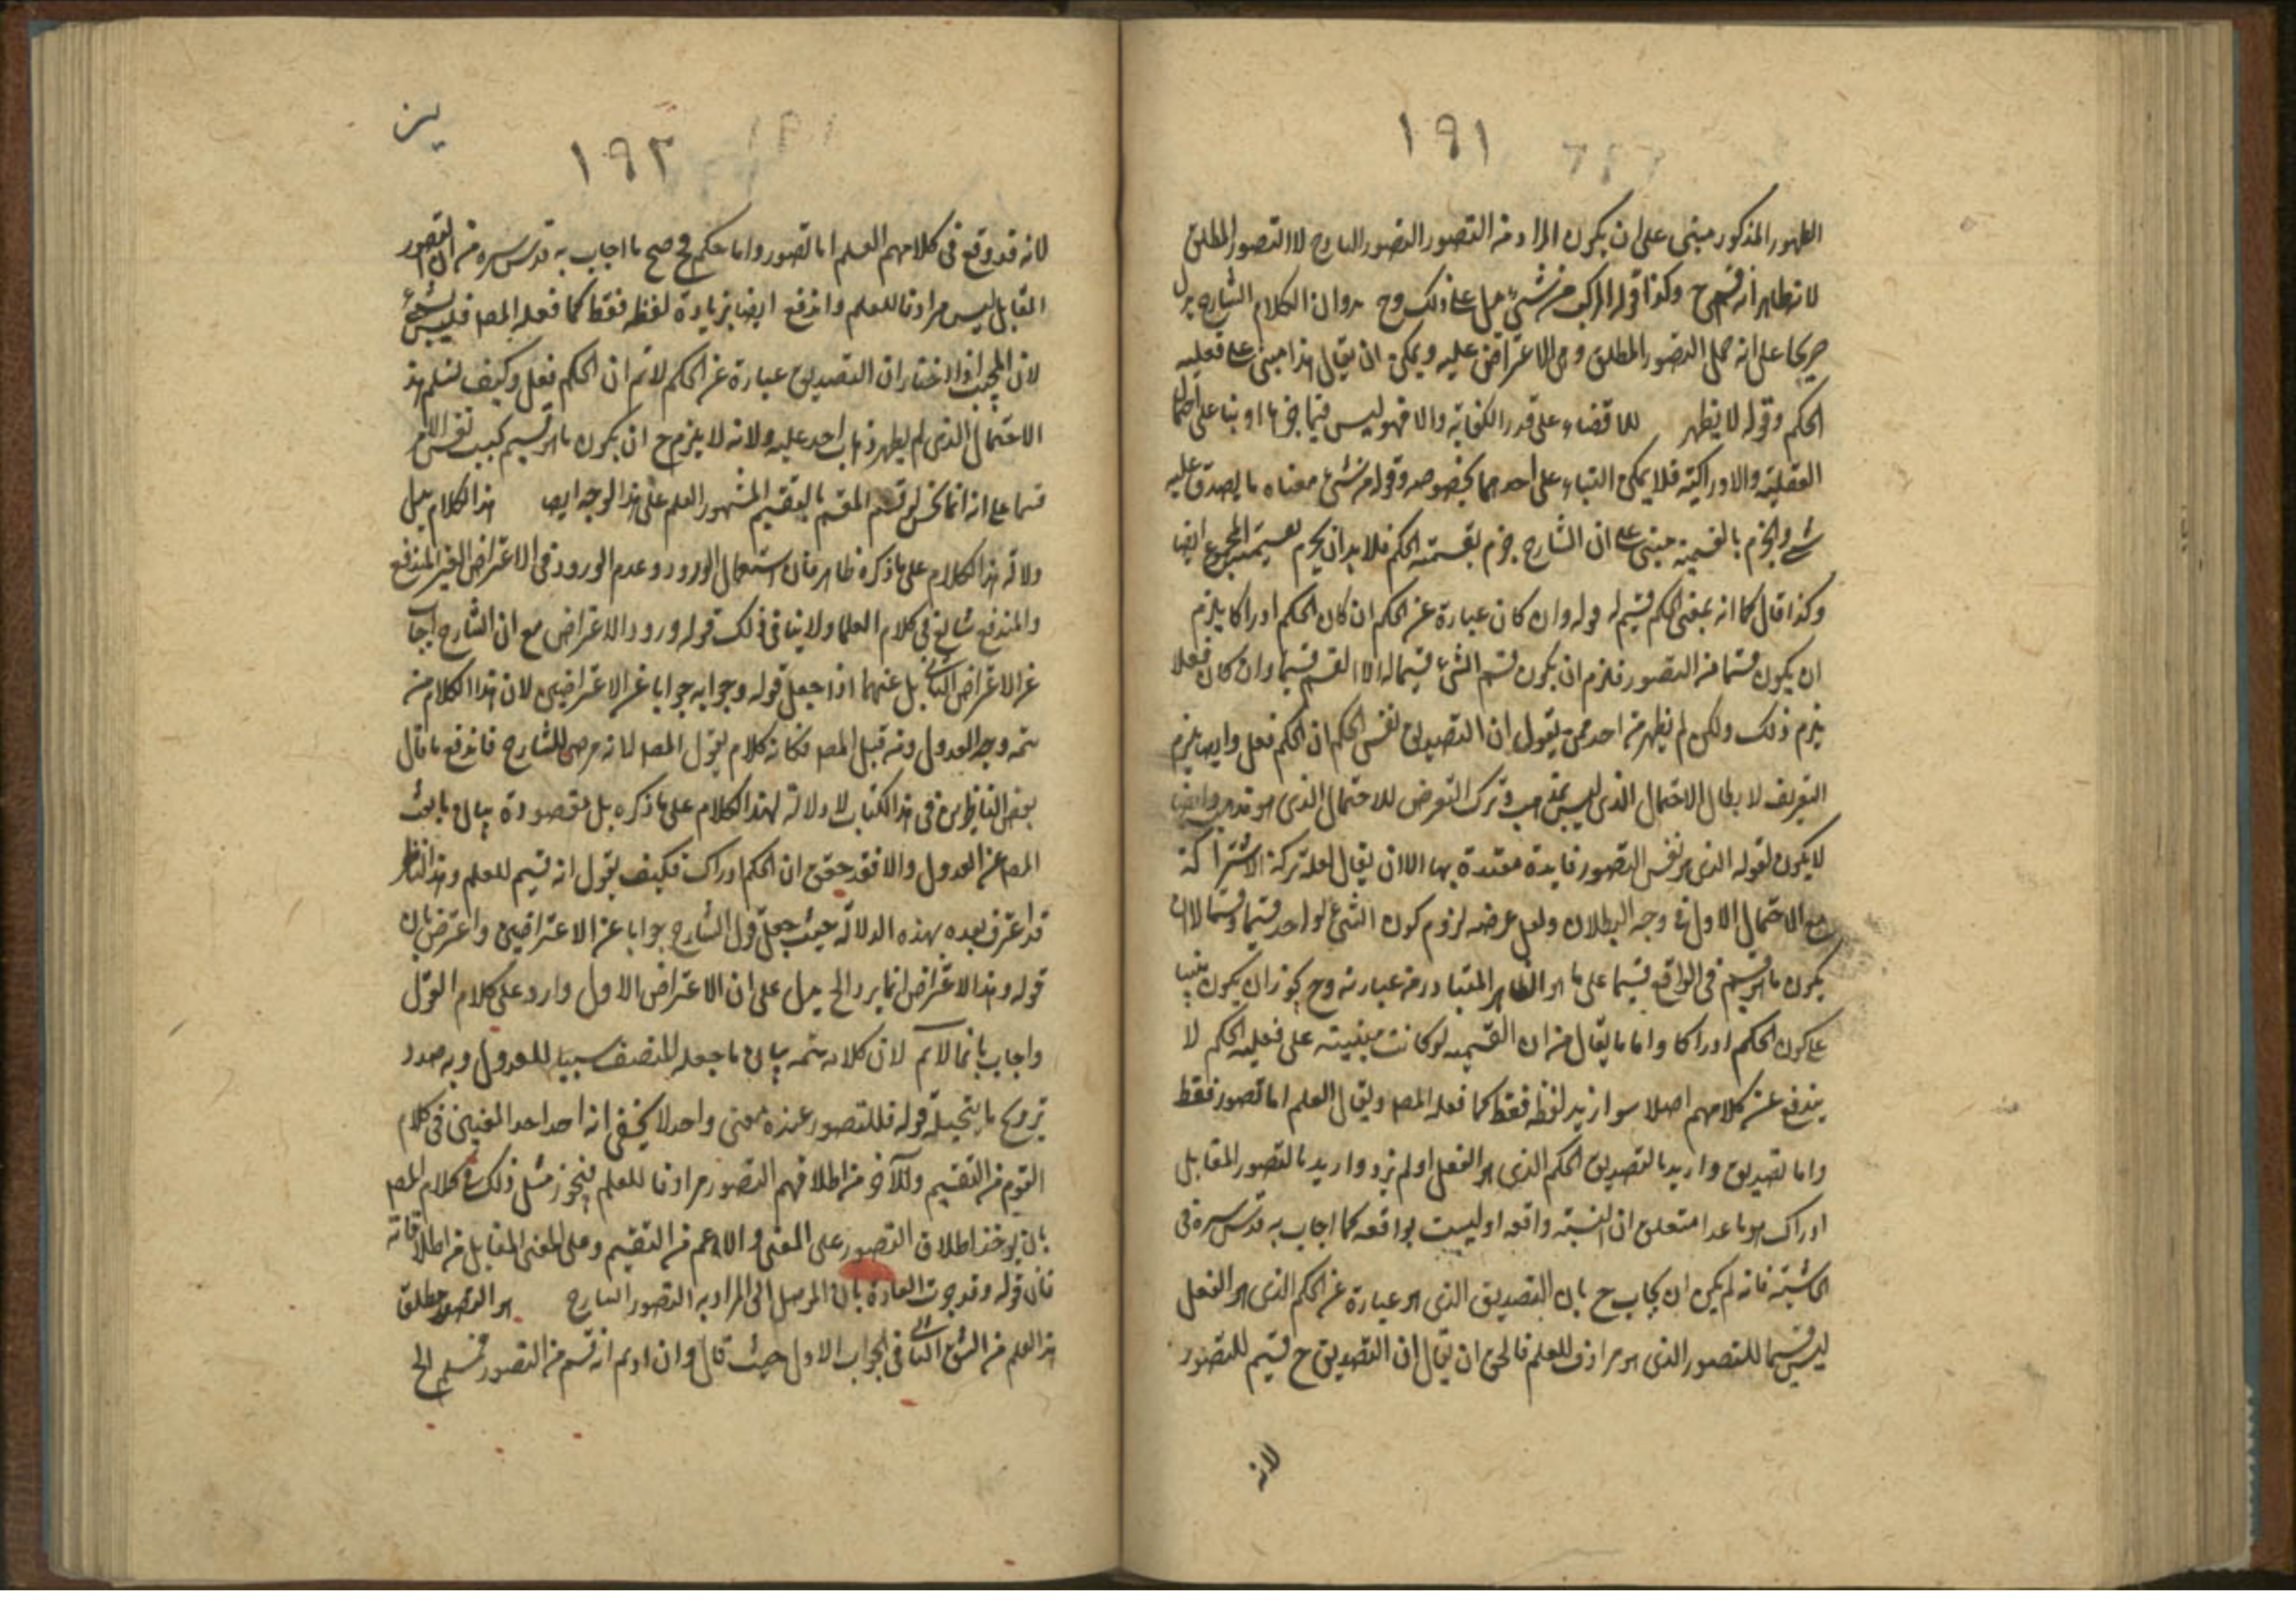 ١٩١
الظهور المذكور مبنى على ان يكون المراد من التصور التصور الساذج لا التصور المطلق
لانه ظاهر انه قسم ح وكذا قوله المركب من شئ يدل على ذلك وح يرد ان الكلام الشارح يدل
صريحا على انه حمل التصور المطلق وحق الاعتراض عليه ويمكن ان يقال هذا مبنى على فعليه
الحكم وقوله لا يظهر للاقتضاء على قدر الكفاية والا فهو ليس فيما او بناء على احتمال
الفعلية والادراكية فلا يمكن البناء على احدهما بخصوصه وقوله من شئ معناه ما يصدق عليه
شئ والجزم بالقسيمية مبنى على ان الشارح جزم بقسمية الحكم فلا بد ان يجزم بقسيمية المجموع ايضا
وكذا قال كما انه بمعنى الحكم قسيم له قوله وان كان عبارة عن الحكم ان كان الحكم ادراكا يلزم
ان يكون قسما من التصور فلزم ان يكون قسم الشئ قسيما له الا القسم قسيما وان كان فعلا
يلزم ذلك ولكن لم يظهر من احد ممن يقول ان التصديق نفس الحكم ان الحكم فعل وايضا يلزم
التعريف لابطال الاحتمال الذى ليس بمذهب وترك التعرض للاحتمال الذى هو مذهب وايضا
لا يكون لقوله الذى هو نفس التصور فايدة معتدة بها الا ان يقال لعله تركه لاشتراكه
مع الاحتمال الاول فى وجه البطلان ولعل غرضه لزوم كون الشئ لواحد قسيما وقسما لا ان
يكون ما هو قسم فى الواقع قسيما على ما هو الظاهر المتبادر من عبارته وح يجوز ان يكون مبنيا
على كون الحكم ادراكا واما ما يقال من ان القسيمية لو كانت مبنية على فعلية الحكم لا
يندفع عن كلامهم اصلا سواء زيد لفظ فقط كما فعله المص ويقال العلم اما تصور فقط
واما تصديق واريد بالتصديق الحكم الذى هو الفعل او لم يزد واريد بالتصور المقابل
ادراك هو ما عدا متعلق ان النسبة واقعة او ليست بواقعة كما اجاب به قدس سره فى
الحاشية فانه لم يمكن ان يجاب ح بان التصديق الذى هو عبارة عن الحكم الذى هو الفعل
ليس قسما للتصور الذى هو مرادف للعلم فالحق ان يقال ان التصديق ح قسيم للتصور
لانه
١٩٢
لانه قد وقع فى كلامهم العلم اما تصور واما حكم فح صح ما اجاب به قدس سره من ان التصور
المقابل ليس مرادفا للعلم واندفع ايضا بزيادة لفظ فقط كما فعله المص فليس بشئ
لان المجيب اذا اختار ان التصديق عبارة عن الحكم لا نم ان الحكم فعل وكيف نسلم هذا
الاحتمال الذى لم يظهر ذهاب احد عليه ولانه لا يلزم ح ان يكون ما هو قسيم بحسب نفس الامر
قسما على انه انما يحسن لو قسم المقسم بالتقسيم المشهور العلم على هذا الوجه ايضا هذا الكلام يدل
دلالة هذا الكلام على ما ذكره ظاهر فان استعمال الورود وعدم الورود فى الاعتراض الغير المندفع
والمندفع شايع فى كلام العلماء ولا ينافى ذلك قوله ورود الاعتراض مع ان الشارح اجاب
عن الاعتراض الثانى بل عنهما اذا جعل قوله وجوابه جوابا عن الاعتراضين لان هذا الكلام من
تتمة وجه العدول ومن قبل المص فكانه كلام يقول المص لانه مرضى للشارح فاندفع ما قال
بعض الناظرين فى هذا الكتاب لا دلالة لهذا الكلام على ما ذكره بل مقصوده بيان باعث
المص عن العدول والا فقد حقق ان الحكم ادراك فكيف يقول انه قسيم للعلم وهذا الناظر
قد اعترف بعده بهذه الدلالة حيث جعل قول الشارح جوابا عن الاعتراضين واعترض بان
قوله وهذا الاعتراض انما يرد الخ يدل على ان الاعتراض الاول وارد على كلام القول
واجاب بانا لا نم لان كلامه تتمة بيان ما جعله المصنف سببا للعدول وبصدد
ترويج ما يتخيله قوله فللتصور عنده معنى واحد لا يخفى انه احد احد المعنيين فى كلام
القوم من التقسيم والآخر من اطلاقهم التصور مرادفا للعلم فيجوز مثل ذلك فى كلام المص
بان يؤخذ اطلاق التصور على المعنى والاعم من التقسيم وعلى المعنى المقابل من اطلاقاته
فان قوله وقد جرت العادة بان الموصل الى المراد به التصور الساذج هو التصور مطلق
هذا العلم من الشق الثانى فى الجواب الاول حيث قال وان اردتم انه قسم من التصور فمسلم الخ